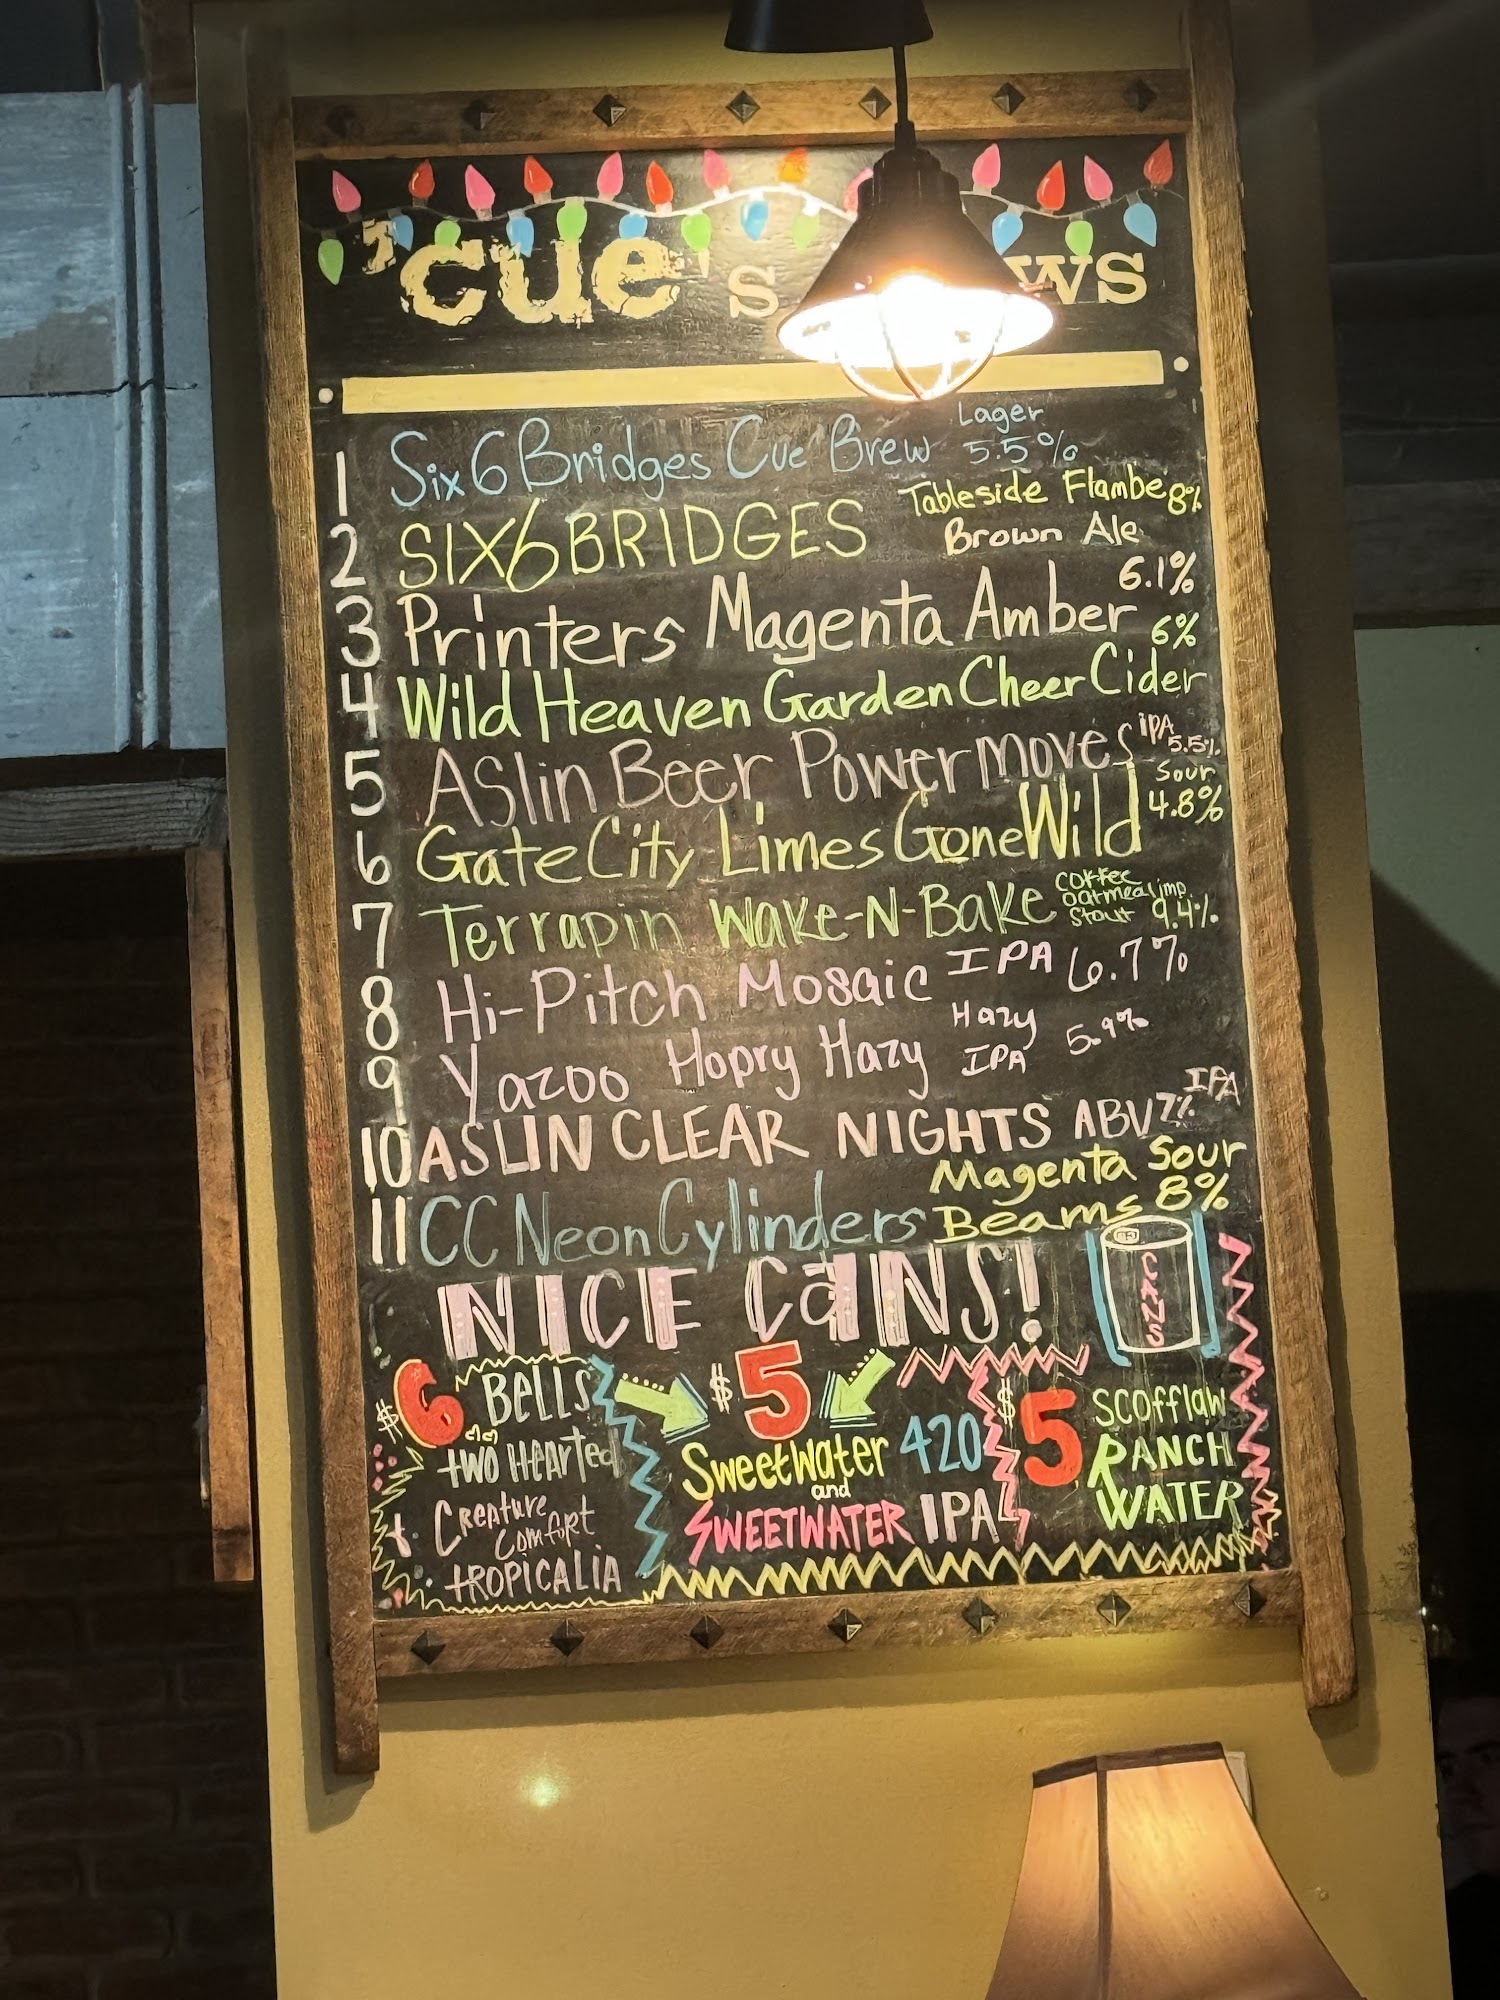 'cue's
1 Six6Bridges Cue Brew Lager 5.5%
2 SIX6BRIDGES Tableside Flambe 8% Brown Ale
3 Printers Magenta Amber 6.1%
4 Wild Heaven Garden Cheer Cider 6%
5 Aslin Beer Power moves iPA 5.5%
6 Gate City Limes Gone Wild Sour 4.8%
7 Terrapin Wake-N-Bake coffee oatmeal imp. stout 9.4%
8 Hi-Pitch Mosaic IPA 6.7%
9 Yazoo Hopry Hazy Hazy IPA 5.9%
10 ASLIN CLEAR NIGHTS ABV 7% IPA
11 CC Neon Cylinders Magenta Sour Beams 8%
NICE CaNS!
CANS
$6 BELLS
two Hearted
Creature
Comfort
tROPICALIA
$5
Sweetwater 420
and
SWEETWATER IPA
$5 SCOFFLAW
RANCH
WATER